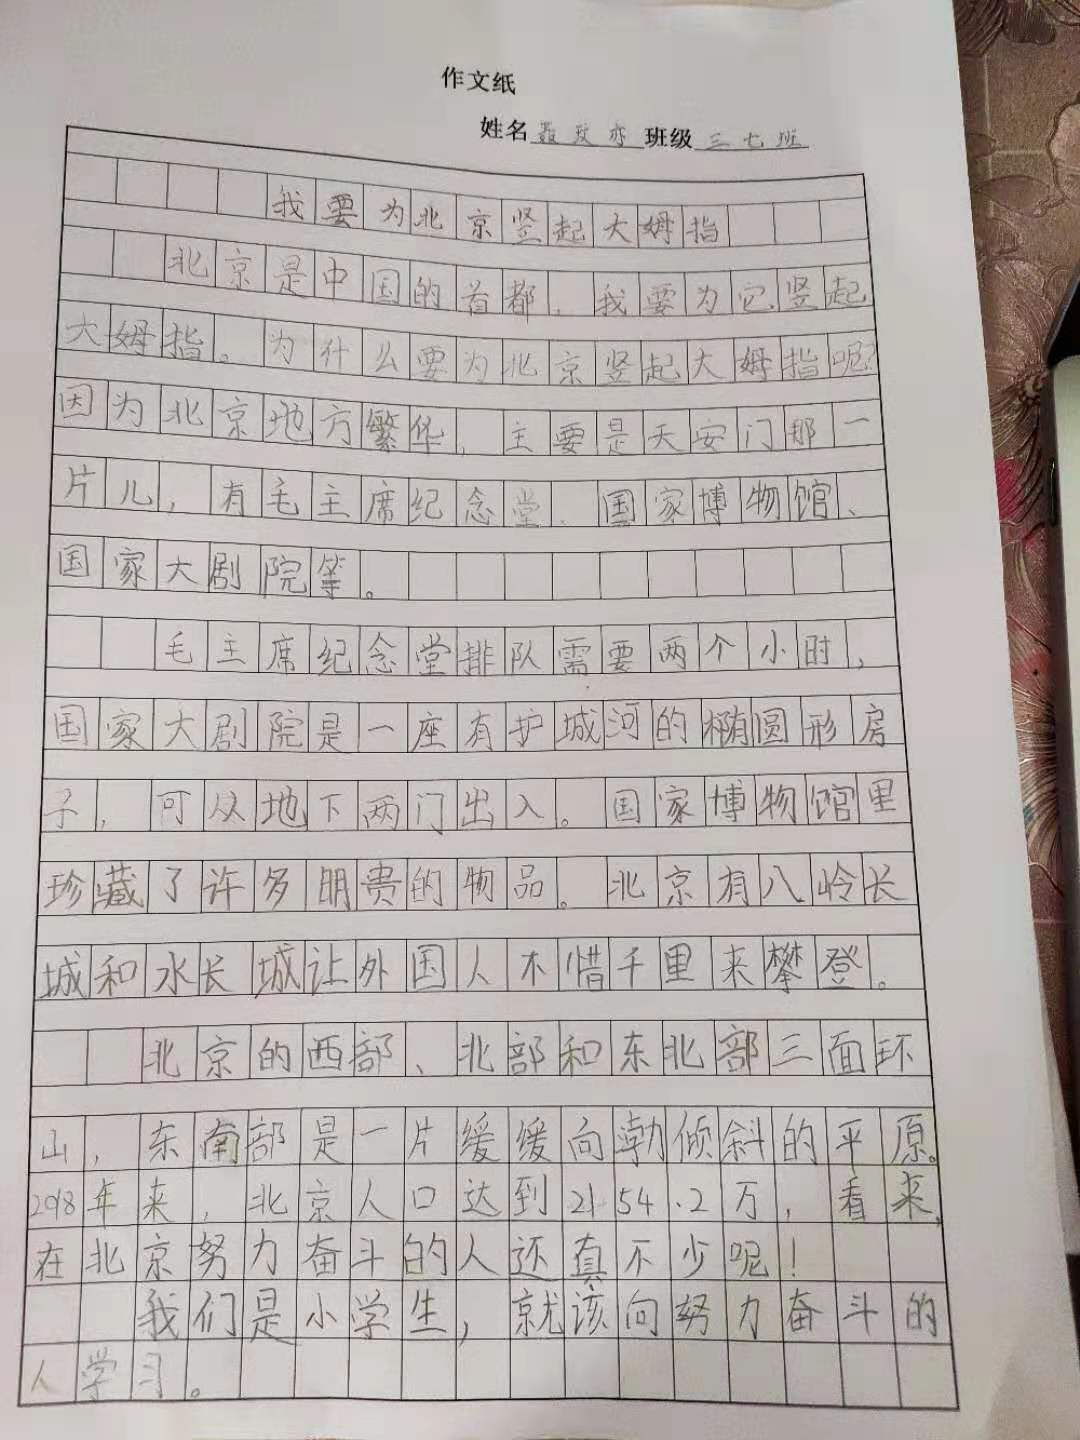 作文纸
姓名 聂政亦 班级 三七班
我要为北京竖起大姆指
北京是中国的首都，我要为它竖起
大姆指。为什么要为北京竖起大姆指呢?
因为北京地方繁华，主要是天安门那一
片儿，有毛主席纪念堂、国家博物馆、
国家大剧院等。
毛主席纪念堂排队需要两个小时，
国家大剧院是一座有护城河的椭圆形房
子，可从地下两门出入。国家博物馆里
珍藏了许多朋贵的物品。北京有八岭长
城和水长城让外国人不惜千里来攀登。
北京的西部、北部和东北部三面环
山，东南部是一片缓缓向渤倾斜的平原。
2018年来，北京人口达到2154.2万，看来，
在北京努力奋斗的人还真不少呢！
我们是小学生，就该向努力奋斗的
人学习。